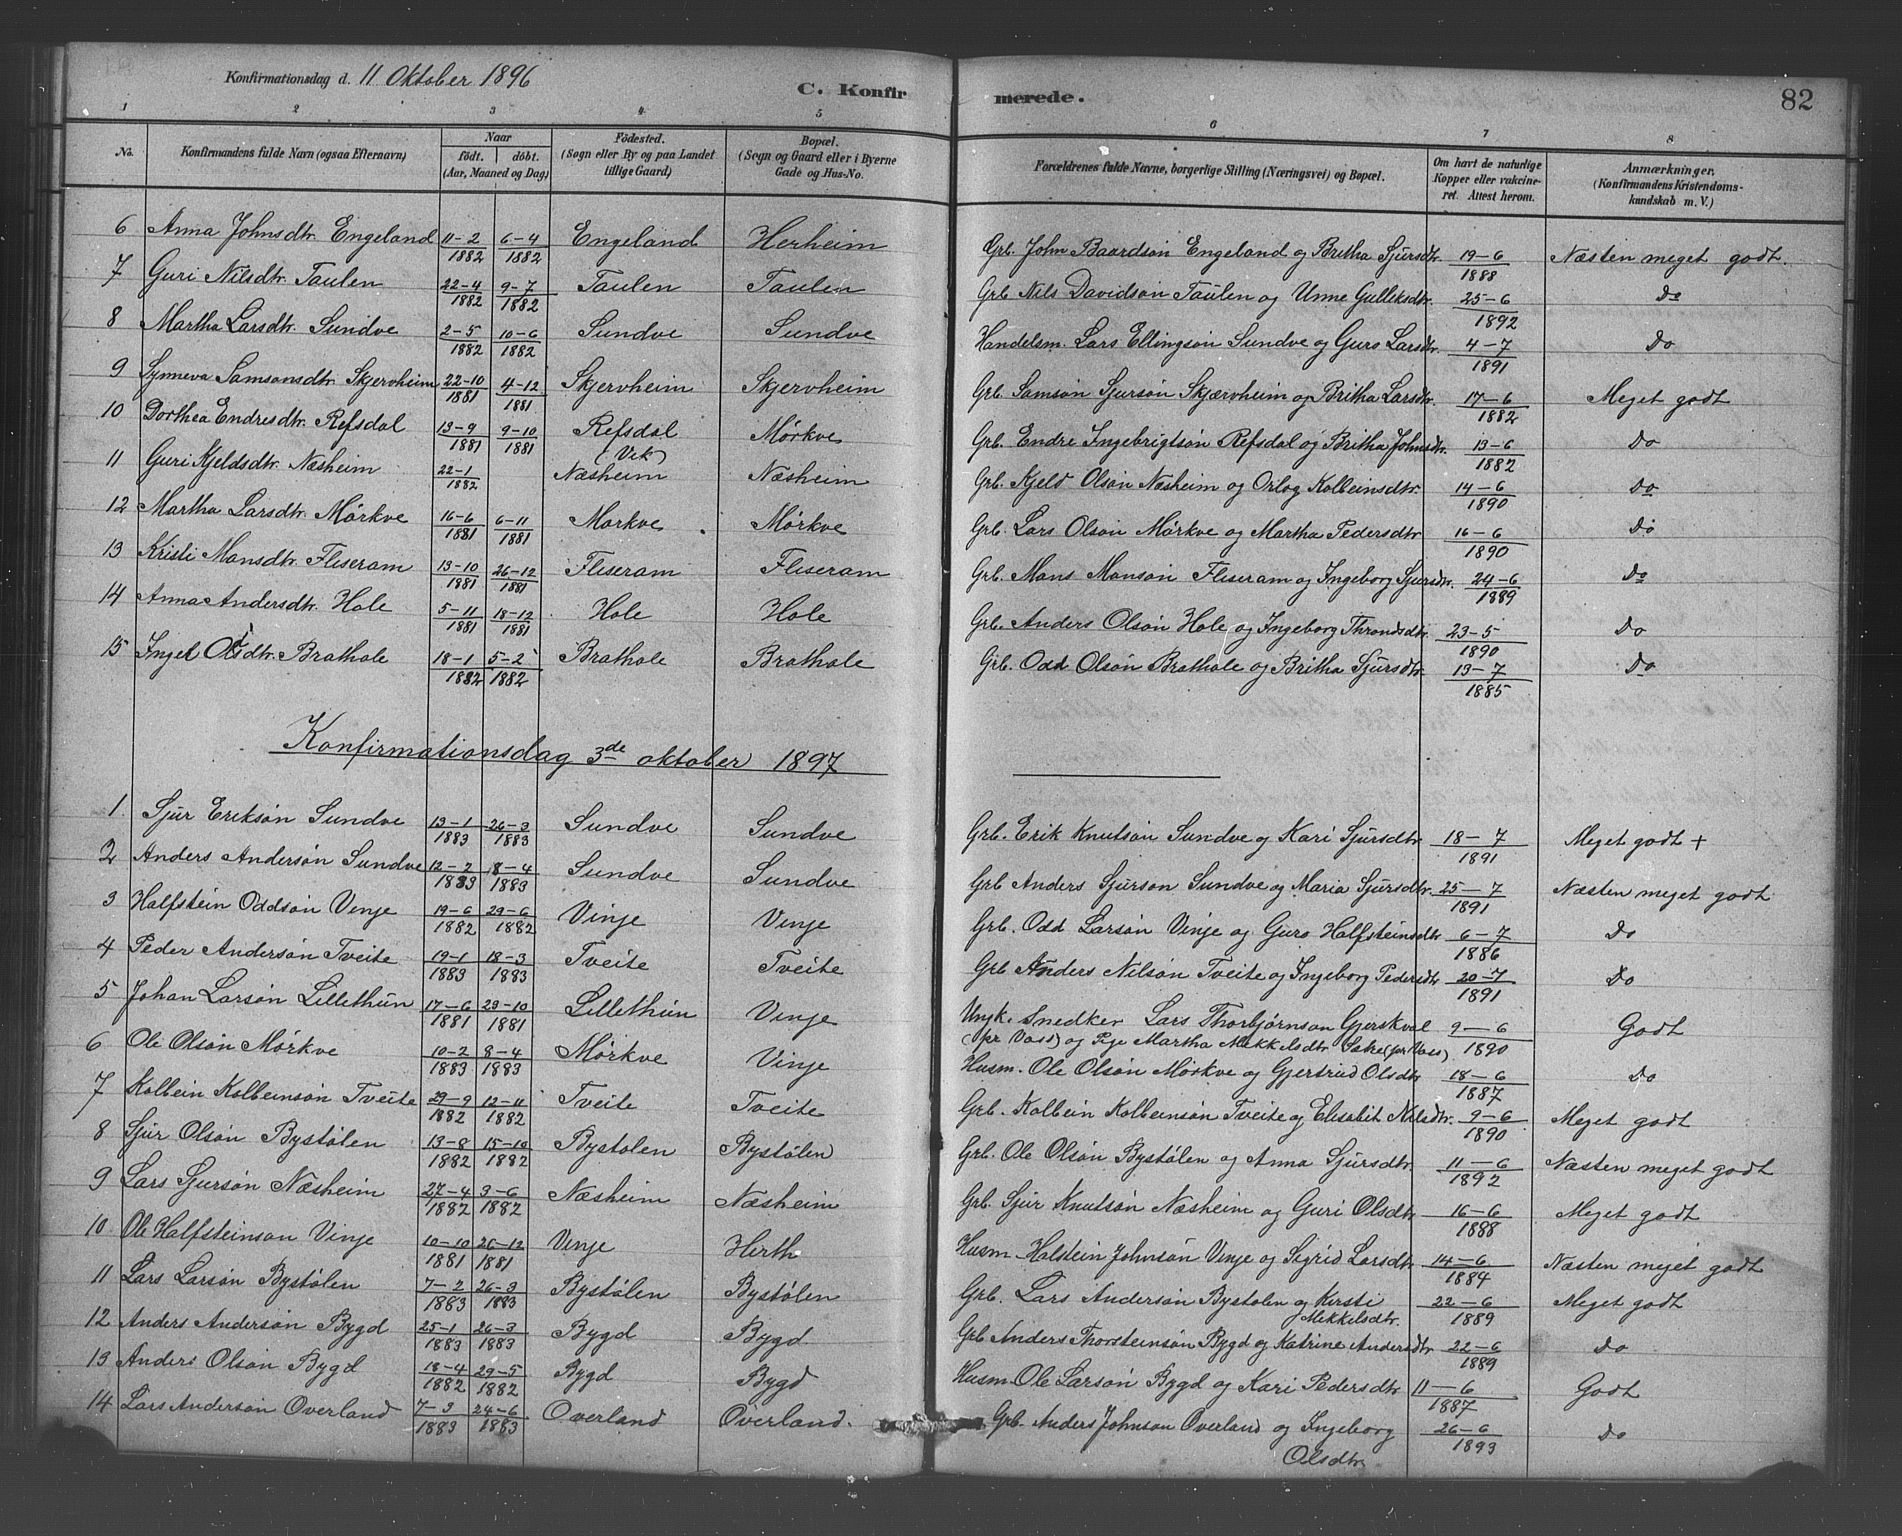 Konfirmationsdag d. 11 Oktober 1896
C. Konfirmerede.
82
1 2 3 4 5 6 7 8
No. | Konfirmandens fulde Navn (ogsaa Efternavn) | Naar født. døbt. (Aar, Maaned og Dag) | Fødested. (Sogn eller By og paa Landet tillige Gaard) | Bopæl. (Sogn og Gaard eller i Byerne Gade og Hus-No. | Forældrenes fulde Navne, borgerlige Stilling (Næringsvei) og Bopæl. | Om havt de naturlige Kopper eller vakcineret. Attest herom. | Anmærkninger. (Konfirmandens Kristendomskundskab m. V.)
6 Anna Johnsdtr. Engeland 11-2 1882 6-4 1882 Engeland Herheim Grb. John Baardsøn Engeland og Britha Sjursdtr. 19-6 1888 Næsten meget godt.
7 Guri Nilsdtr. Taulen 22-4 1882 9-7 1882 Taulen Taulen Grb. Nils Davidsøn Taulen og Unne Gulleksdtr. 25-6 1892 Do
8 Martha Larsdtr. Sundve 2-5 1882 10-6 1882 Sundve Sundve Handelsm. Lars Ellingsøn Sundve og Guro Larsdtr. 4-7 1891 Do
9 Synneva Samsonsdtr. Skjervheim 22-10 1881 4-12 1881 Skjervheim Skjervheim Grb. Samson Sjursøn Skjærvheim og Britha Larsdtr. 17-6 1882 Meget godt
10 Dorthea Endresdtr. Refsdal 13-9 1881 9-10 1881 Refsdal (Vik) Mørkve Grb. Endre Ingebrigtsøn Refsdal og Britha Johnsdtr. 13-6 1882 Do
11 Guri Kjeldsdtr. Næsheim 22-1 1882 Næsheim Næsheim Grb. Kjeld Olsøn Næsheim og Orlog Kolbeinsdtr. 14-6 1890 Do
12 Martha Larsdtr. Mørkve 16-6 1881 6-11 1881 Mørkve Mørkve Grb. Lars Olsøn Mørkve og Martha Pedersdtr. 16-6 1890 Do
13 Kristi Monsdtr. Fliseram 13-10 1881 26-12 1881 Fliseram Fliseram Grb. Mons Monsøn Fliseram og Ingeborg Sjursdtr. 24-6 1889 Do
14 Anna Andersdtr. Hole 5-11 1881 18-12 1881 Hole Hole Grb. Anders Olsøn Hole og Ingeborg Throndsdtr. 23-5 1890 Do
15 Ingel Odsdtr. Brathole 18-1 1882 5-2 1882 Brathole Brathole Grb. Odd Olsøn Brathole og Britha Sjursdtr. 13-7 1885 Do
Konfirmationsdag 3de oktober 1897
1 Sjur Eriksøn Sundve 13-1 1883 26-3 1883 Sundve Sundve Grb. Erik Knutsøn Sundve og Kari Sjursdtr. 18-7 1891 Meget godt +
2 Anders Andersøn Sundve 12-2 1883 8-4 1883 Sundve Sundve Grb Anders Sjurson Sundve og Maria Sjursdtr. 25-7 1891 Næsten meget godt
3 Halfstein Oddsøn Vinje 19-6 1882 29-6 1882 Vinje Vinje Grb. Odd Larsøn Vinje og Guro Halfsteinsdtr 6-7 1886 Do
4 Peder Andersøn Tveite 19-1 1883 18-3 1883 Tveite Tveite Grb Anders Nilsøn Tveite og Ingeborg Pedersdtr 20-7 1891 Do
5 Johan Larsøn Lillethun 17-6 1881 23-10 1881 Lillethun Vinje Ungk. Snedker Lars Thorbjørnson Gjerskvol 9-6 1890 Godt
(Opr Voss) og Pige Martha Mekkelsdtr (pr Voss).
6 Ole Olsøn Mørkve 10-2 1883 8-4 1883 Mørkve Vinje Husm. Ole Olsøn Mørkve og Gjertrud Olsdtr 18-6 1887 Do
7 Kolbein Kolbeinsøn Tveite 29-9 1882 12-11 1882 Tveite Tveite Grb. Kolbein Kolbeinsøn Tveite og Elisabit Nilsdtr. 9-6 1890 Meget godt
8 Sjur Olsøn Bystølen 13-8 1882 15-10 1882 Bystølen Bystølen Grb. Ole Olsøn Bystølen og Anna Sjursdtr. 11-6 1892 Næsten meget godt
9 Lars Sjursøn Næsheim 27-4 1882 3-6 1882 Næsheim Næsheim Grb. Sjur Knutsøn Næsheim og Guri Olsdtr 16-6 1888 Meget godt
10 Ole Halfsteinson Vinje 10-10 1881 26-12 1881 Vinje Herth Husm. Halstein Johnsøn Vinje og Sigrid Larsdtr 14-6 1884 Næsten meget godt
11 Lars Larsøn Bystølen 7-2 1883 26-3 1883 Bystølen Bystølen Grb. Lars Andersøn Bystølen og Kirsti Mekkelsdtr. 22-6 1889 Meget godt
12 Anders Andersøn Bygd 25-1 1883 26-3 1883 Bygd Bygd Grb Anders Thorsteinsøn Bygd og Katrine Andersdtr 22-6 1889 Do
13 Anders Olsøn Bygd 18-4 1882 29-5 1882 Bygd Bygd Husm. Ole Larsøn Bygd og Kari Pedersdtr 11-6 1887 Godt
14 Lars Andersøn Overland 7-3 1883 24-6 1883 Overland Overland. Grb. Anders Johnsøn Overland og Ingeborg Olsdtr. 26-6 1893 Do